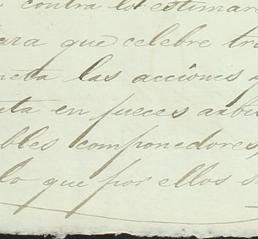 contra lo estimare
para que celebre tra
meta las acciones a
ta en jueces arbi
bles componedores,
lo que por ellos s